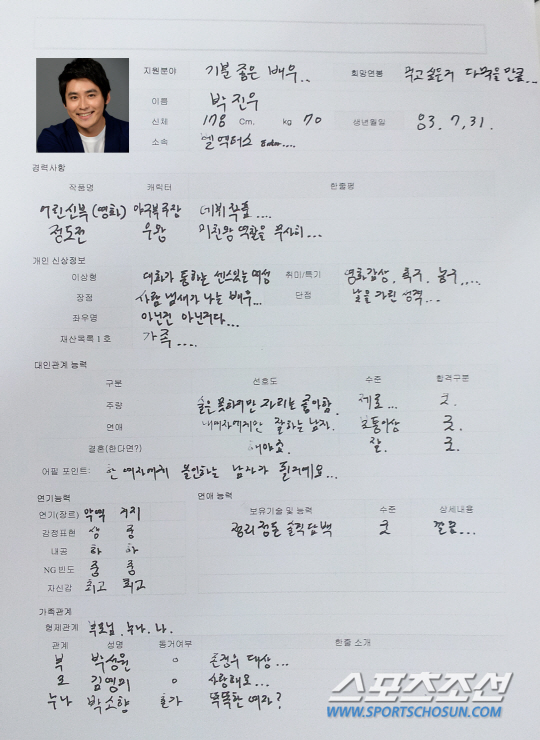 지원분야 기분 좋은 배우... 희망연봉 먹고 싶은거 다먹을 만큼...
이름 박진우
신체 178 Cm. kg 70 생년월일 83. 7. 31.
소속 엘 액터스
경력사항
작품명 캐릭터 한줄평
어린신부(영화) 야구부주장 데뷔작품....
정도전 우왕 미친왕 역할을 무사히...
개인 신상정보
이상형 대화가 통하는 센스있는 여성 취미/특기 영화감상, 축구, 농구,....
장점 사람 냄새가 나는 배우... 단점 낯을 가린 성격...
좌우명 아닌건 아닌거다...
재산목록 1호 가족....
대인관계 능력
구분 선호도 수준 합격구분
주량 술은 못하지만 자리는 좋아함. 제로...
연애 내여자에게만 잘하는 남자. 보통이상 굿.
결혼(한다면?) 해야죠. 잘. 굿.
어필 포인트: 한 여자에게 올인하는 남자가 될거에요...
연기능력 연애 능력
연기(장르) 악역 거지 보유기술 및 능력 수준 상세내용
감정표현 상 중 정리정돈 솔직담백 굿 깔끔...
내공 하 하
NG빈도 중 중
자신감 최고 최고
가족관계
형제관계 부모님. 누나. 나.
관계 성명 동거여부 한줄 소개
부 박성원 o 존경의 대상...
모 김영미 o 사랑해요...
누나 박소향 출가 똑똑한 여자?
스포츠조선
WWW.SPORTSCHOSUN.COM